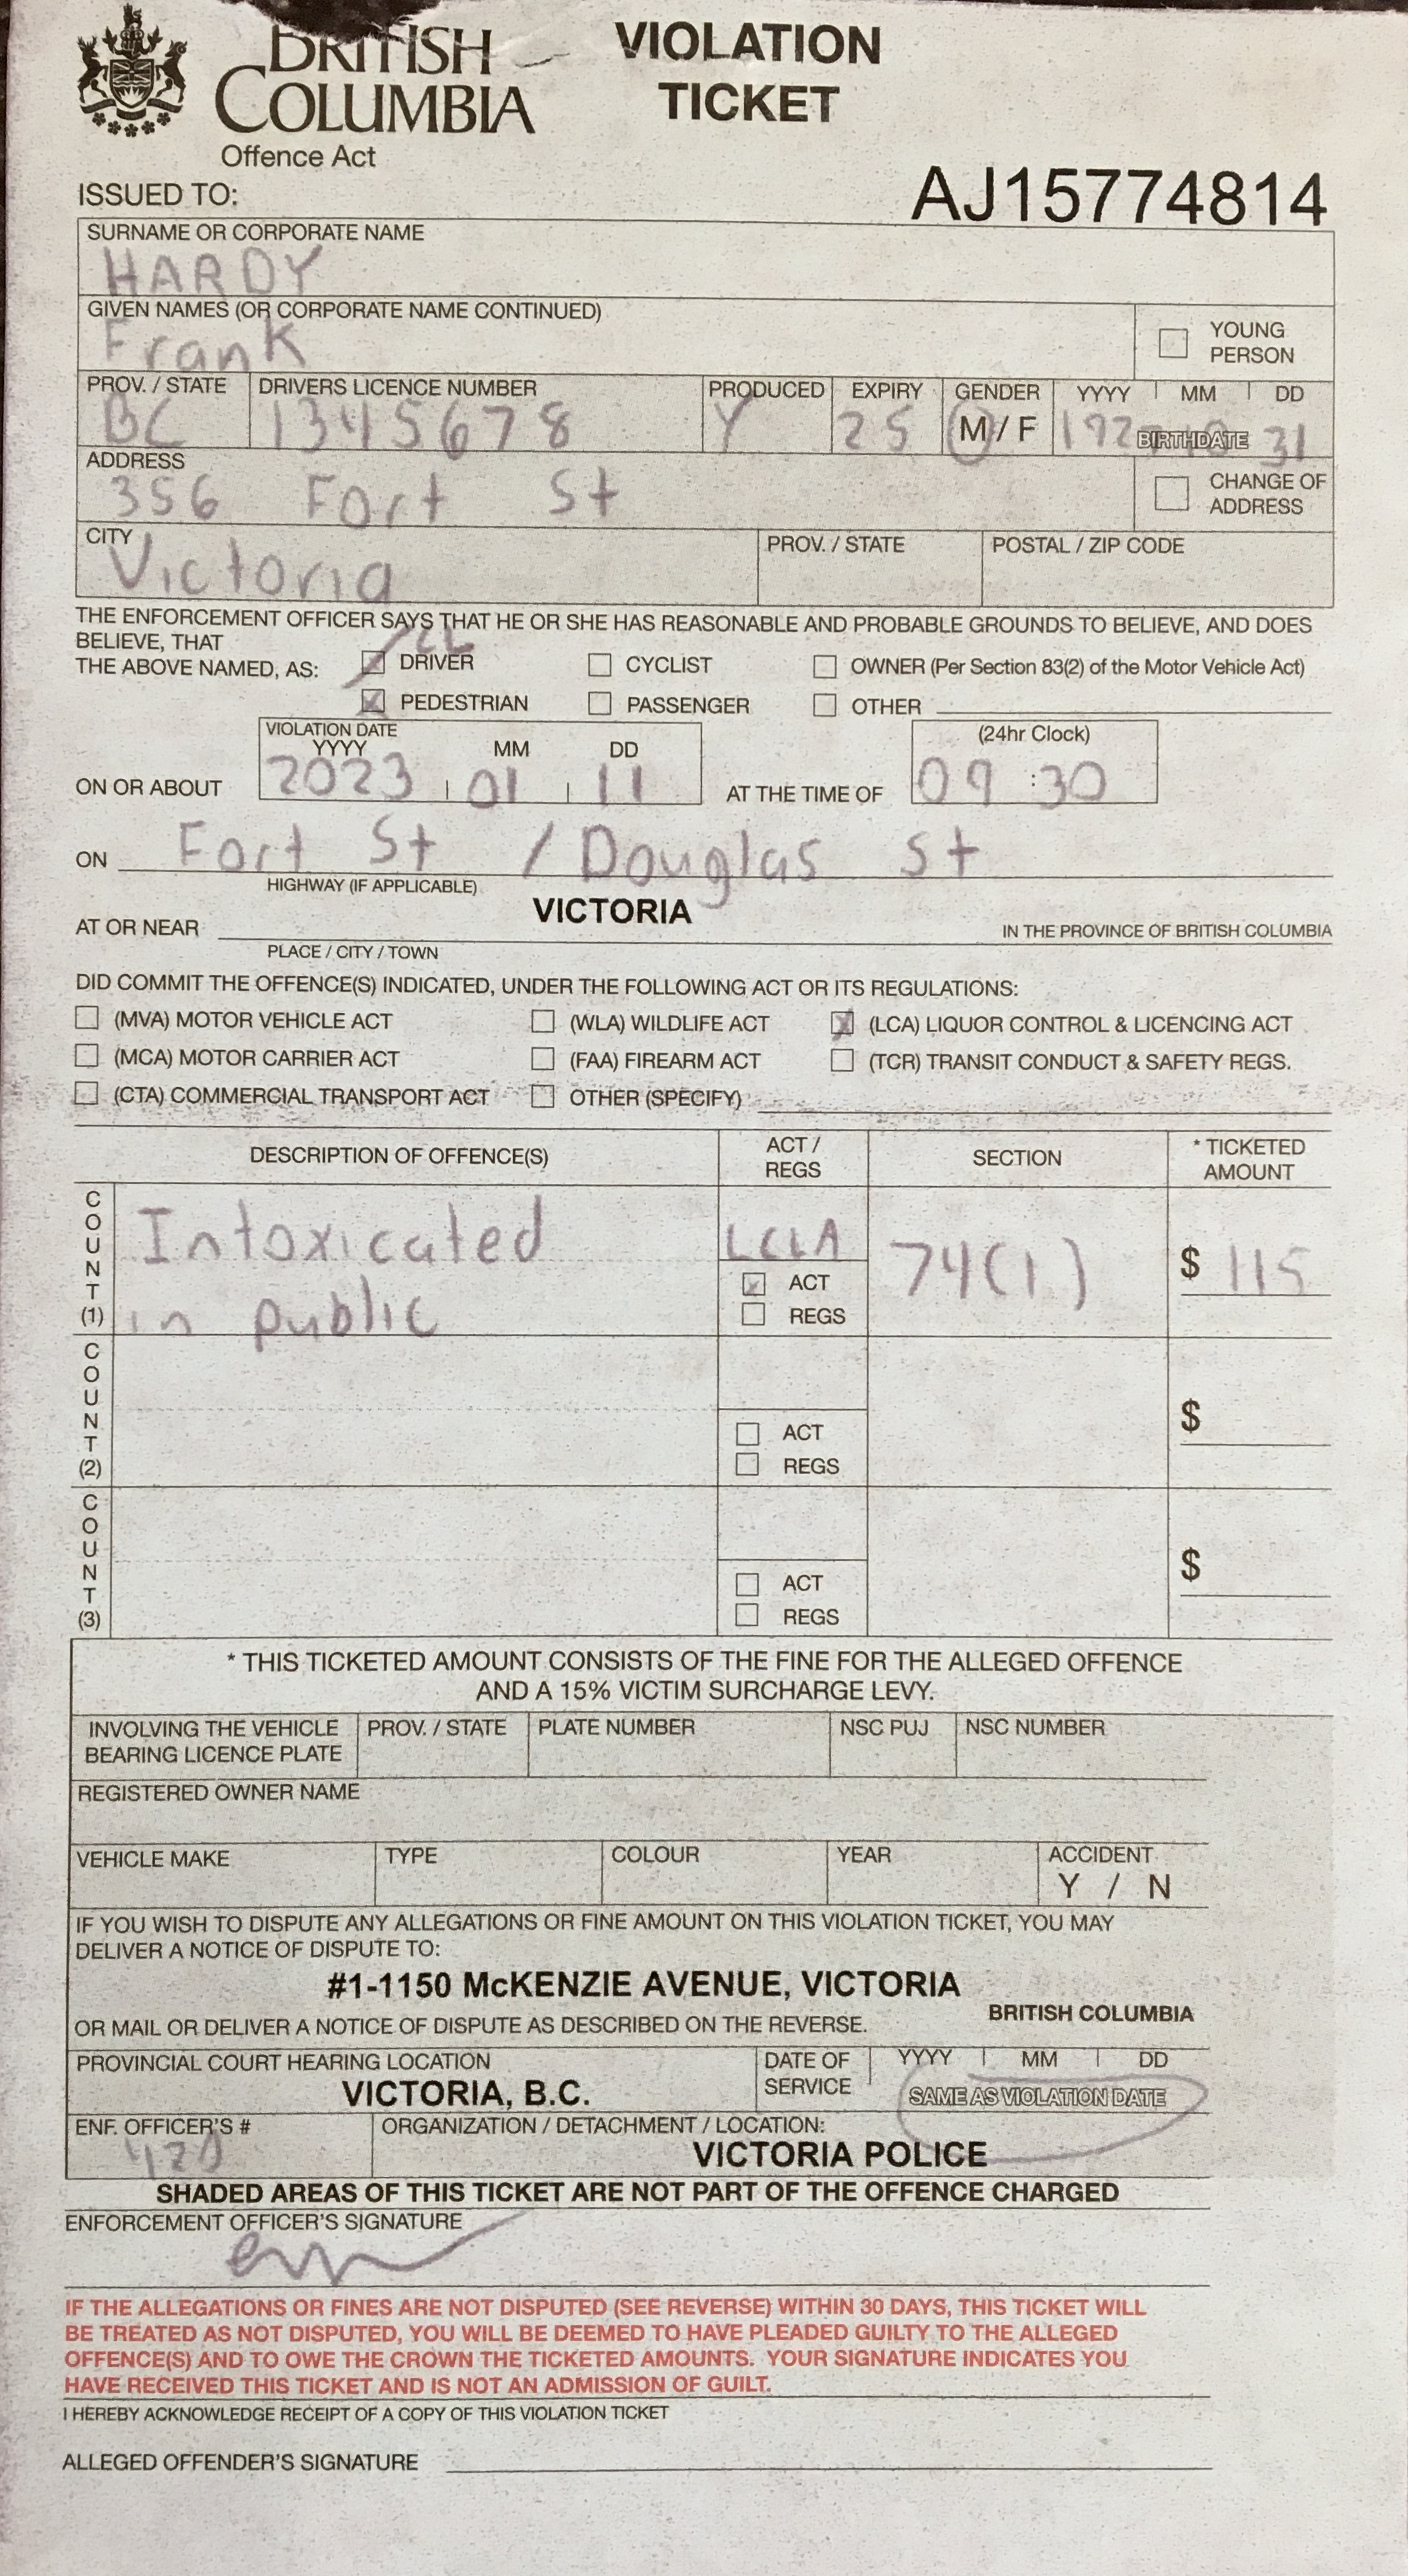 BRITISH
COLUMBIA
Offence Act
VIOLATION
TICKET
ISSUED TO:
AJ15774814
SURNAME OR CORPORATE NAME
HARDY
GIVEN NAMES (OR CORPORATE NAME CONTINUED)
Frank
YOUNG PERSON
PROV. / STATE DRIVERS LICENCE NUMBER PRODUCED EXPIRY GENDER YYYY MM DD
BC 1345678 Y 25 M / F BIRTHDATE 31
ADDRESS
356 Fort St
CHANGE OF ADDRESS
CITY PROV. / STATE POSTAL / ZIP CODE
Victoria
THE ENFORCEMENT OFFICER SAYS THAT HE OR SHE HAS REASONABLE AND PROBABLE GROUNDS TO BELIEVE, AND DOES
BELIEVE, THAT
THE ABOVE NAMED, AS: DRIVER CYCLIST OWNER (Per Section 83(2) of the Motor Vehicle Act)
PEDESTRIAN PASSENGER OTHER
VIOLATION DATE
YYYY MM DD (24hr Clock)
ON OR ABOUT 2023 01 11 AT THE TIME OF 09:30
ON Fort St / Douglas St
HIGHWAY (IF APPLICABLE)
AT OR NEAR VICTORIA IN THE PROVINCE OF BRITISH COLUMBIA
PLACE / CITY / TOWN
DID COMMIT THE OFFENCE(S) INDICATED, UNDER THE FOLLOWING ACT OR ITS REGULATIONS:
(MVA) MOTOR VEHICLE ACT (WLA) WILDLIFE ACT (LCA) LIQUOR CONTROL & LICENCING ACT
(MCA) MOTOR CARRIER ACT (FAA) FIREARM ACT (TCR) TRANSIT CONDUCT & SAFETY REGS.
(CTA) COMMERCIAL TRANSPORT ACT OTHER (SPECIFY)
DESCRIPTION OF OFFENCE(S) ACT / REGS SECTION * TICKETED AMOUNT
COUNT (1) Intoxicated LCLA 74(1) $ 115
in public ACT
REGS
COUNT (2) $
ACT
REGS
COUNT (3) $
ACT
REGS
* THIS TICKETED AMOUNT CONSISTS OF THE FINE FOR THE ALLEGED OFFENCE
AND A 15% VICTIM SURCHARGE LEVY.
INVOLVING THE VEHICLE BEARING LICENCE PLATE PROV. / STATE PLATE NUMBER NSC PUJ NSC NUMBER
REGISTERED OWNER NAME
VEHICLE MAKE TYPE COLOUR YEAR ACCIDENT
Y / N
IF YOU WISH TO DISPUTE ANY ALLEGATIONS OR FINE AMOUNT ON THIS VIOLATION TICKET, YOU MAY
DELIVER A NOTICE OF DISPUTE TO:
#1-1150 McKENZIE AVENUE, VICTORIA
BRITISH COLUMBIA
OR MAIL OR DELIVER A NOTICE OF DISPUTE AS DESCRIBED ON THE REVERSE.
PROVINCIAL COURT HEARING LOCATION DATE OF SERVICE YYYY MM DD
VICTORIA, B.C. SAME AS VIOLATION DATE
ENF. OFFICER'S # ORGANIZATION / DETACHMENT / LOCATION:
VICTORIA POLICE
SHADED AREAS OF THIS TICKET ARE NOT PART OF THE OFFENCE CHARGED
ENFORCEMENT OFFICER'S SIGNATURE
IF THE ALLEGATIONS OR FINES ARE NOT DISPUTED (SEE REVERSE) WITHIN 30 DAYS, THIS TICKET WILL
BE TREATED AS NOT DISPUTED, YOU WILL BE DEEMED TO HAVE PLEADED GUILTY TO THE ALLEGED
OFFENCE(S) AND TO OWE THE CROWN THE TICKETED AMOUNTS. YOUR SIGNATURE INDICATES YOU
HAVE RECEIVED THIS TICKET AND IS NOT AN ADMISSION OF GUILT.
I HEREBY ACKNOWLEDGE RECEIPT OF A COPY OF THIS VIOLATION TICKET
ALLEGED OFFENDER'S SIGNATURE